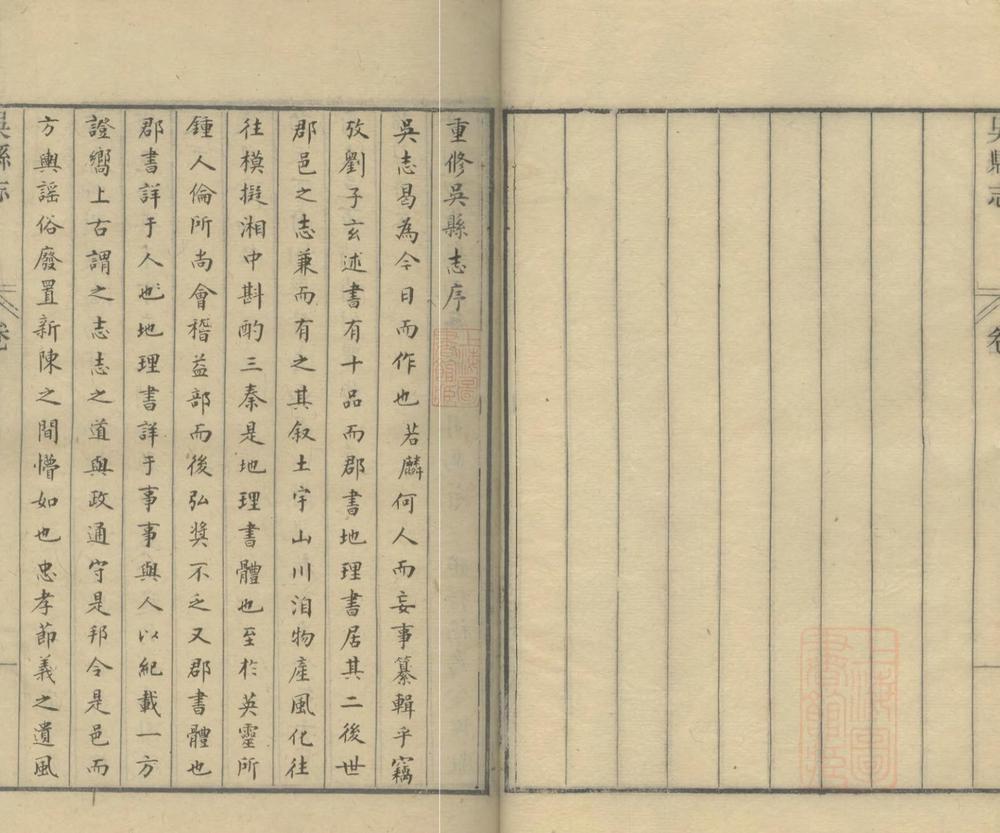 重修吳縣志序
吳志曷為今日而作也若麟何人而妄事纂輯乎竊
攷劉子玄述書有十品而郡書地理書居其二後世
郡邑之志兼而有之其叙土宇山川洎物產風化往
往模擬湘中斟酌三秦是地理書體也至於英靈所
鍾人倫所尚會稽益部而後弘奬不乏又郡書體也
郡書詳于人也地理書詳于事事與人以紀載一方
證嚮上古謂之志志之道與政通守是邦令是邑而
方輿謡俗廢置新陳之間懵如也忠孝節義之遺風
吳縣志
卷
一
吳縣志
卷
上海圖書館藏
上海圖書館藏